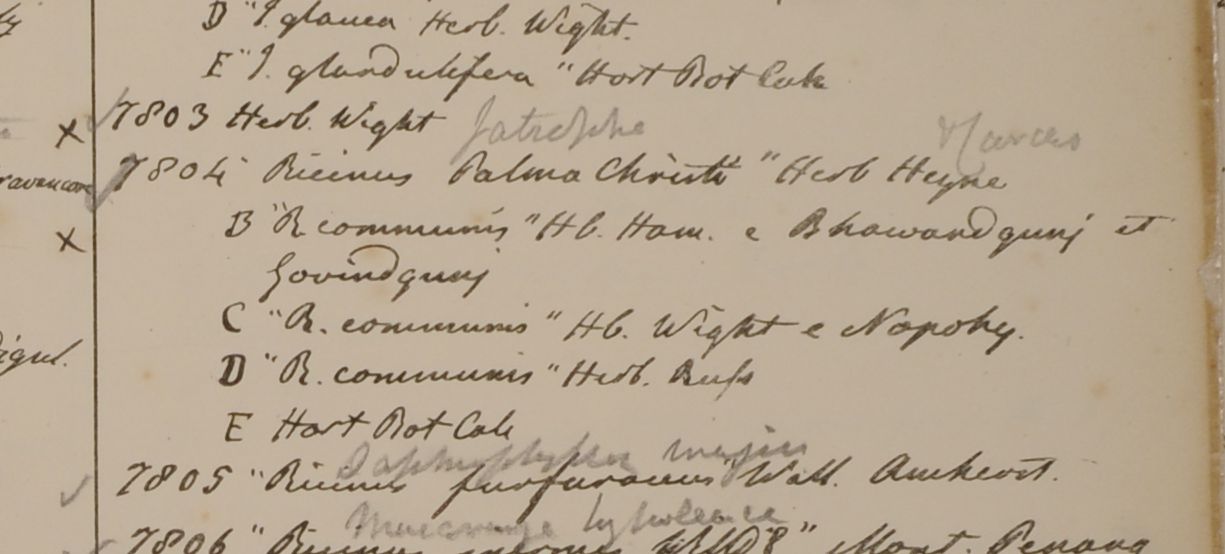 D "J. glauca Herb. Wight.
E "J. glandulifera" Hort Bot Calc
7803 Herb. Wight Jatropha Curcas
7804 Ricinus Palma Christi" Herb Heyne
B "R communis" Hb. Ham. e Bhawandgunj et
Govindgunj
C "R. communis" Hb. Wight e Napoky.
D "R. communis" Herb. Russ
E Hort Bot Calc
7805 "Ricinus furfuraceus" Wall. Amherst.
Macaranga hypoleuca
7806 "Ricinus Mont. Penang